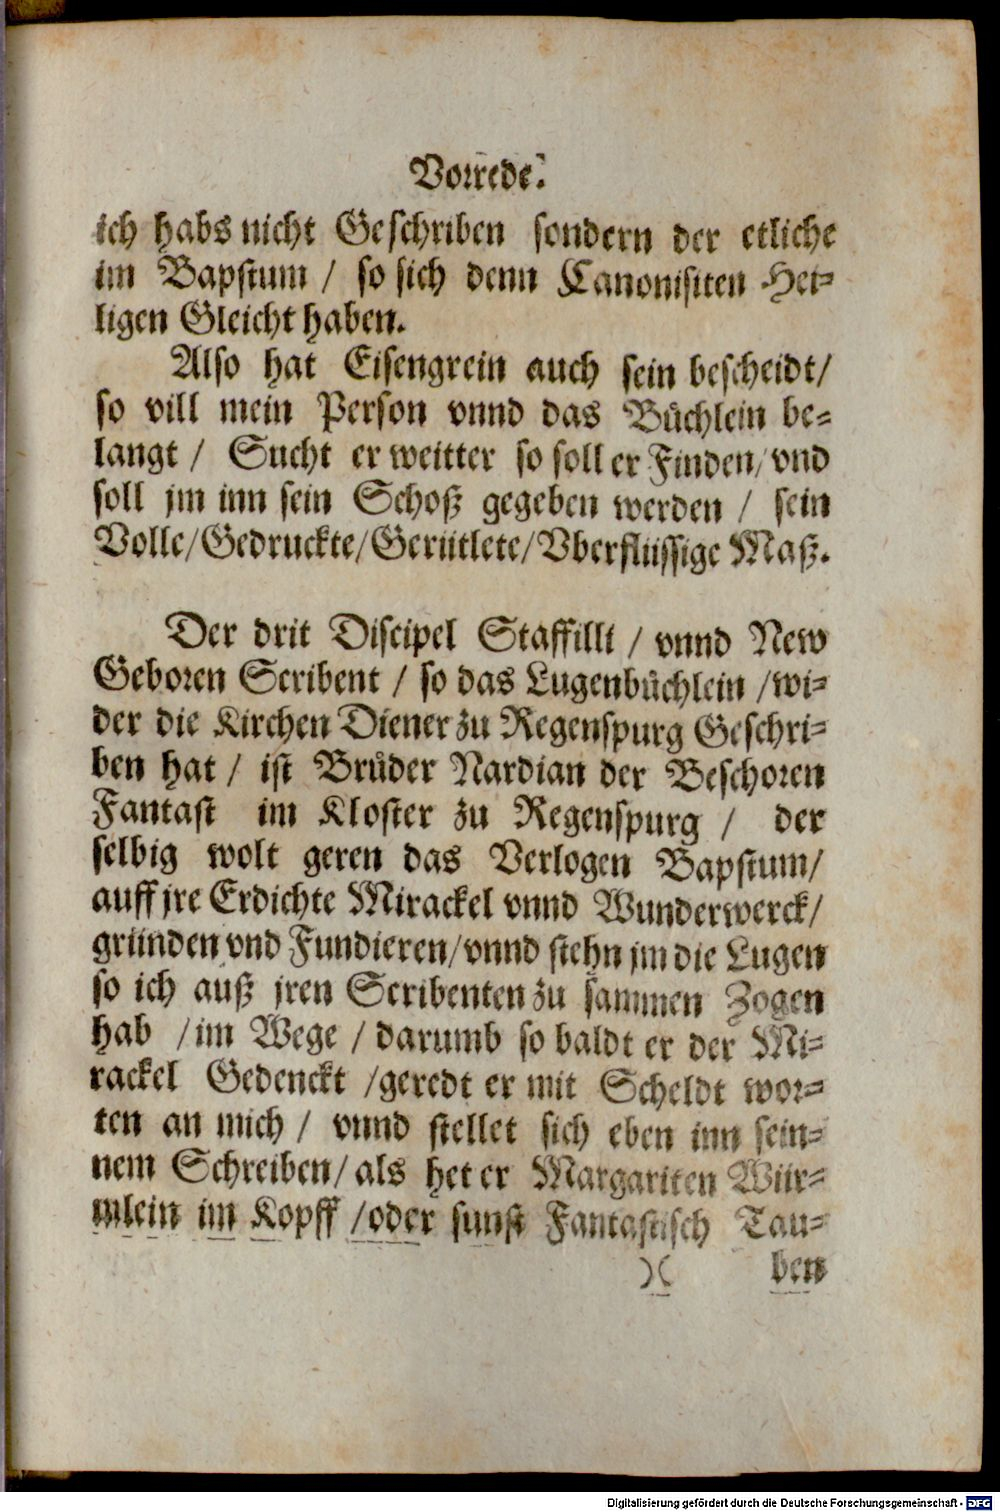 Vorrede.
ich habs nicht Geschriben sondern der etliche
im Bapstum / so sich denn Canonisiten Hei⸗
ligen Gleicht haben.
Also hat Eisengrein auch sein bescheidt/
so vill mein Person vnnd das Bůchlein be⸗
langt / Sucht er weitter so soll er Finden/ vnd
soll jm inn sein Schoß gegeben werden / sein
Volle/Gedruckte/Gerütlete/Vberflüssige Maß.
Der drit Discipel Staffilli / vnnd New
Geboren Scribent / so das Lugenbůchlein /wi⸗
der die Kirchen Diener zu Regenspurg Geschri⸗
ben hat / ist Brůder Nardian der Beschoren
Fantast im Kloster zu Regenspurg / der
selbig wolt geren das Verlogen Bapstum/
auff jre Erdichte Mirackel vnnd Wunderwerck/
gründen vnd Fundieren/vnnd stehn jm die Lugen
so ich auß jren Scribenten zu sammen Zogen
hab /im Wege / darumb so baldt er der Mi⸗
rackel Gedenckt /geredt er mit Scheldt wor⸗
ten an mich / vnnd stellet sich eben inn sein⸗
nem Schreiben/ als het er Margariten Wür⸗
mlein im Kopff /oder sunst Fantastisch Tau⸗
)( ben
Digitalisierung gefördert durch die Deutsche Forschungsgemeinschaft - DFG